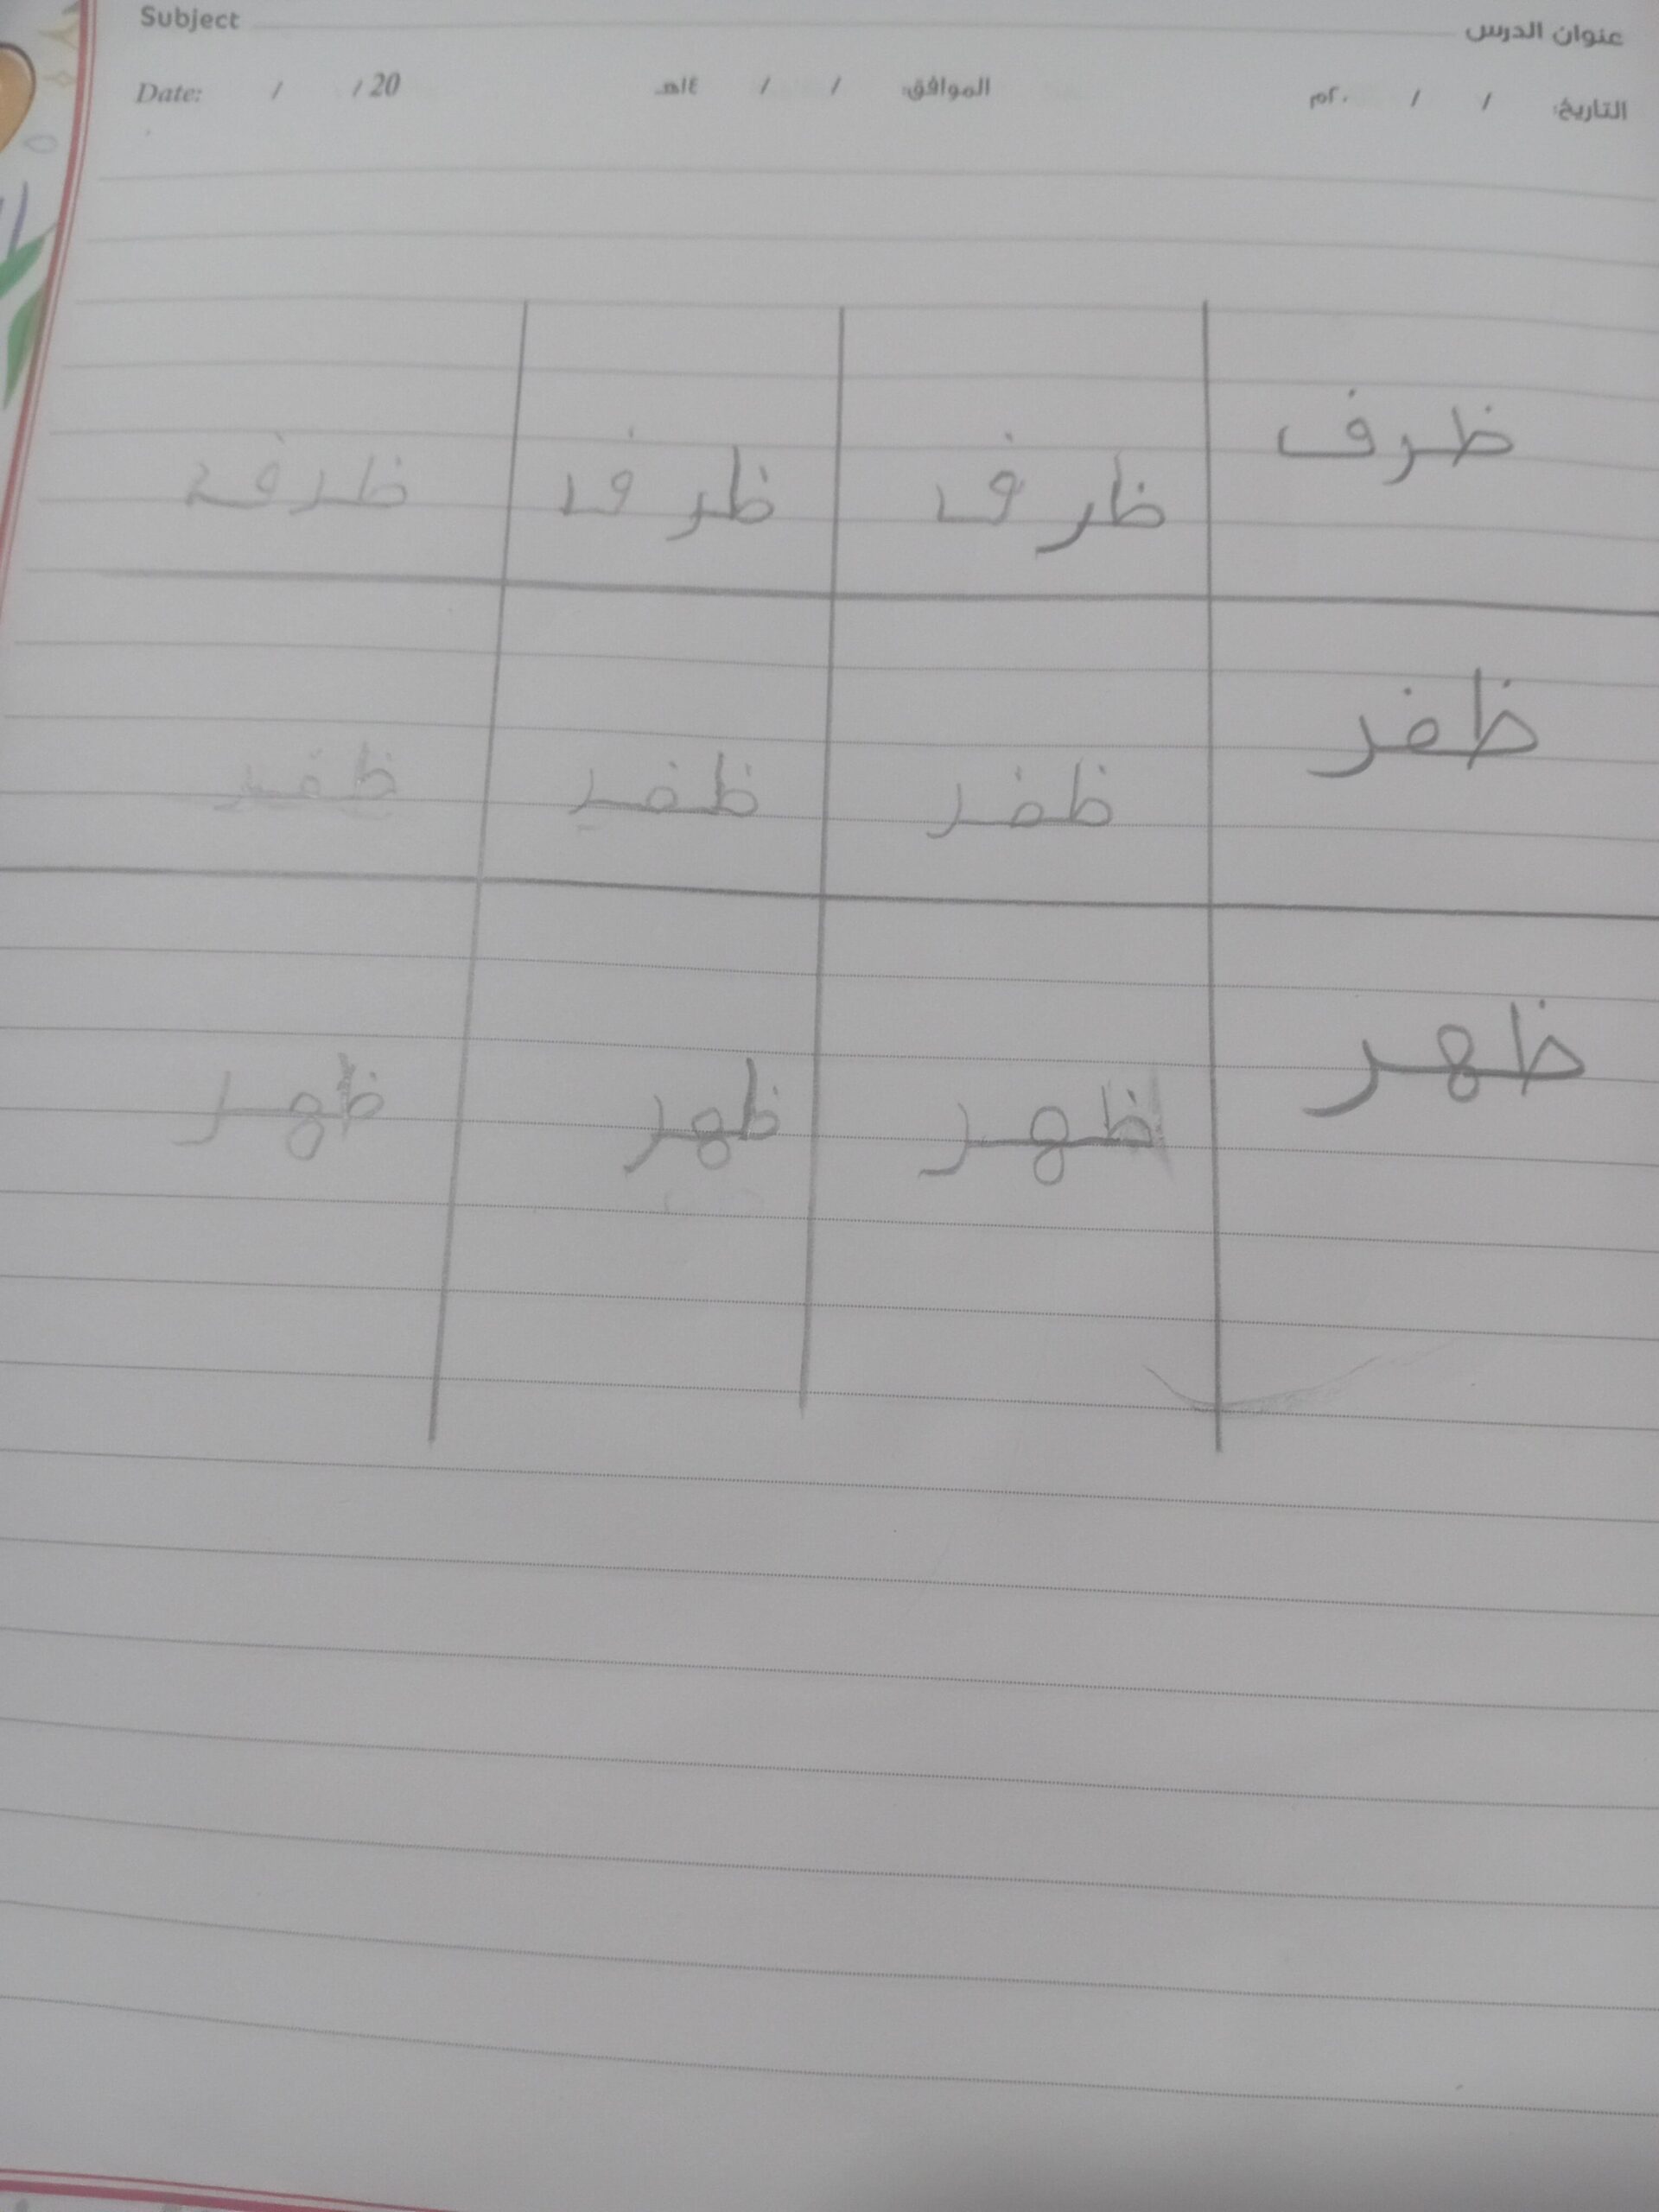 عنوان الدرس Subject
التاريخ: / / ٢٠م الموافق: / / ١٤هـ Date: / / 20
ظرف ظرف ظرف ظرف
ظفر ظفر ظفر ظفر
ظهر ظهر ظهر ظهر